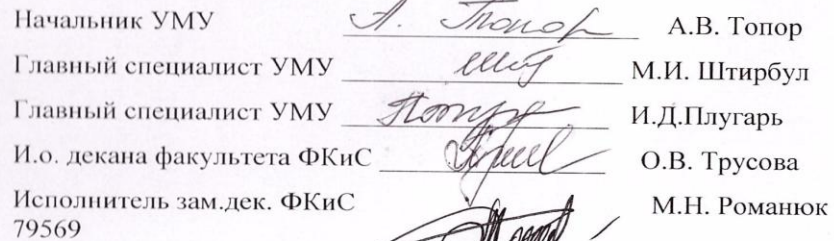 Начальник УМУ А. Топор А.В. Топор
Главный специалист УМУ М.И. Штирбул
Главный специалист УМУ И.Д.Плугарь
И.о. декана факультета ФКиС О.В. Трусова
Исполнитель зам.дек. ФКиС М.Н. Романюк
79569